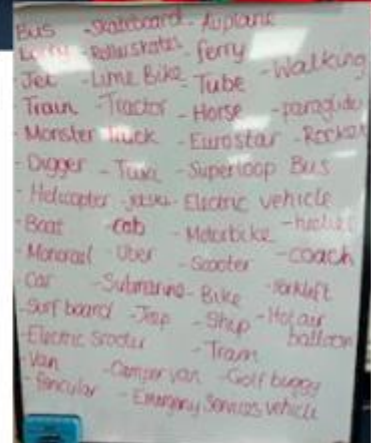 Bus - Skateboard - Airplane
Lorry - Rollerskates - Ferry
- Jet - Lime Bike - Tube - Walking
- Train - Tractor - Horse - paraglider
- Monster Truck - Eurostar - Rocket
- Digger - Taxi - Superloop Bus
- Helicopter - Electric vehicle
- Boat - cab - Motorbike
- Monorail - Uber - Scooter - coach
- Car - Submarine - Bike - forklift
- Surf board - Jeep - Ship - Hot air balloon
- Electric Scooter - Tram
- Van - Camper van - Golf buggy
- Fencular - Emergency Services vehicle